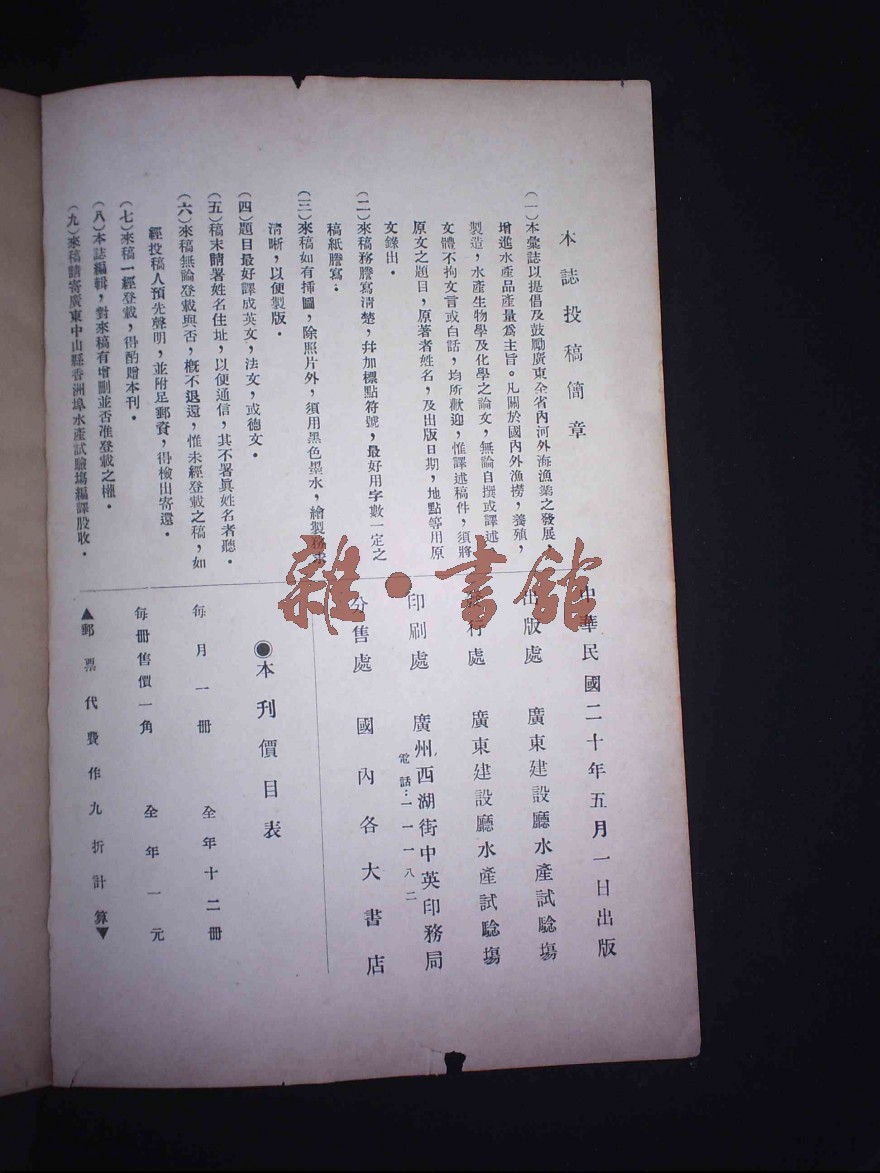 本誌投稿簡章
（一）本彙誌以提倡及鼓勵廣東全省內河外海漁業之發展，
增進水產品產量為主旨。凡關於國內外漁撈，養殖，
製造，水產生物學及化學之論文，無論自撰或譯述，
文體不拘文言或白話，均所歡迎，惟譯述稿件，須將
原文之題目，原著者姓名，及出版日期，地點等用原
文錄出．
（二）來稿務謄寫清楚，幷加標點符號，最好用字數一定之
稿紙謄寫．
（三）來稿如有揷圖，除照片外，須用黑色墨水，繪製務求
清晰，以便製版．
（四）題目最好譯成英文，法文，或德文．
（五）稿末請署姓名住址，以便通信，其不署眞姓名者聽．
（六）來稿無論登載與否，槪不退還，惟未經登載之稿，如
經投稿人預先聲明，並附足郵資，得檢出寄還．
（七）來稿一經登載，得酌贈本刊．
（八）本誌編輯，對來稿有增删並否准登載之權．
（九）來稿請寄廣東中山縣香洲埠水產試驗塲編譯股收．
中華民國二十年五月一日出版
出版處 廣東建設廳水產試驗塲
發行處 廣東建設廳水產試驗塲
印刷處 廣州西湖街中英印務局
電話：一一一八二
分售處 國內各大書店
◉本刊價目表
每月一冊 全年十二冊
每冊售價一角 全年一元
▲郵票代費作九折計算▼
雜·書館